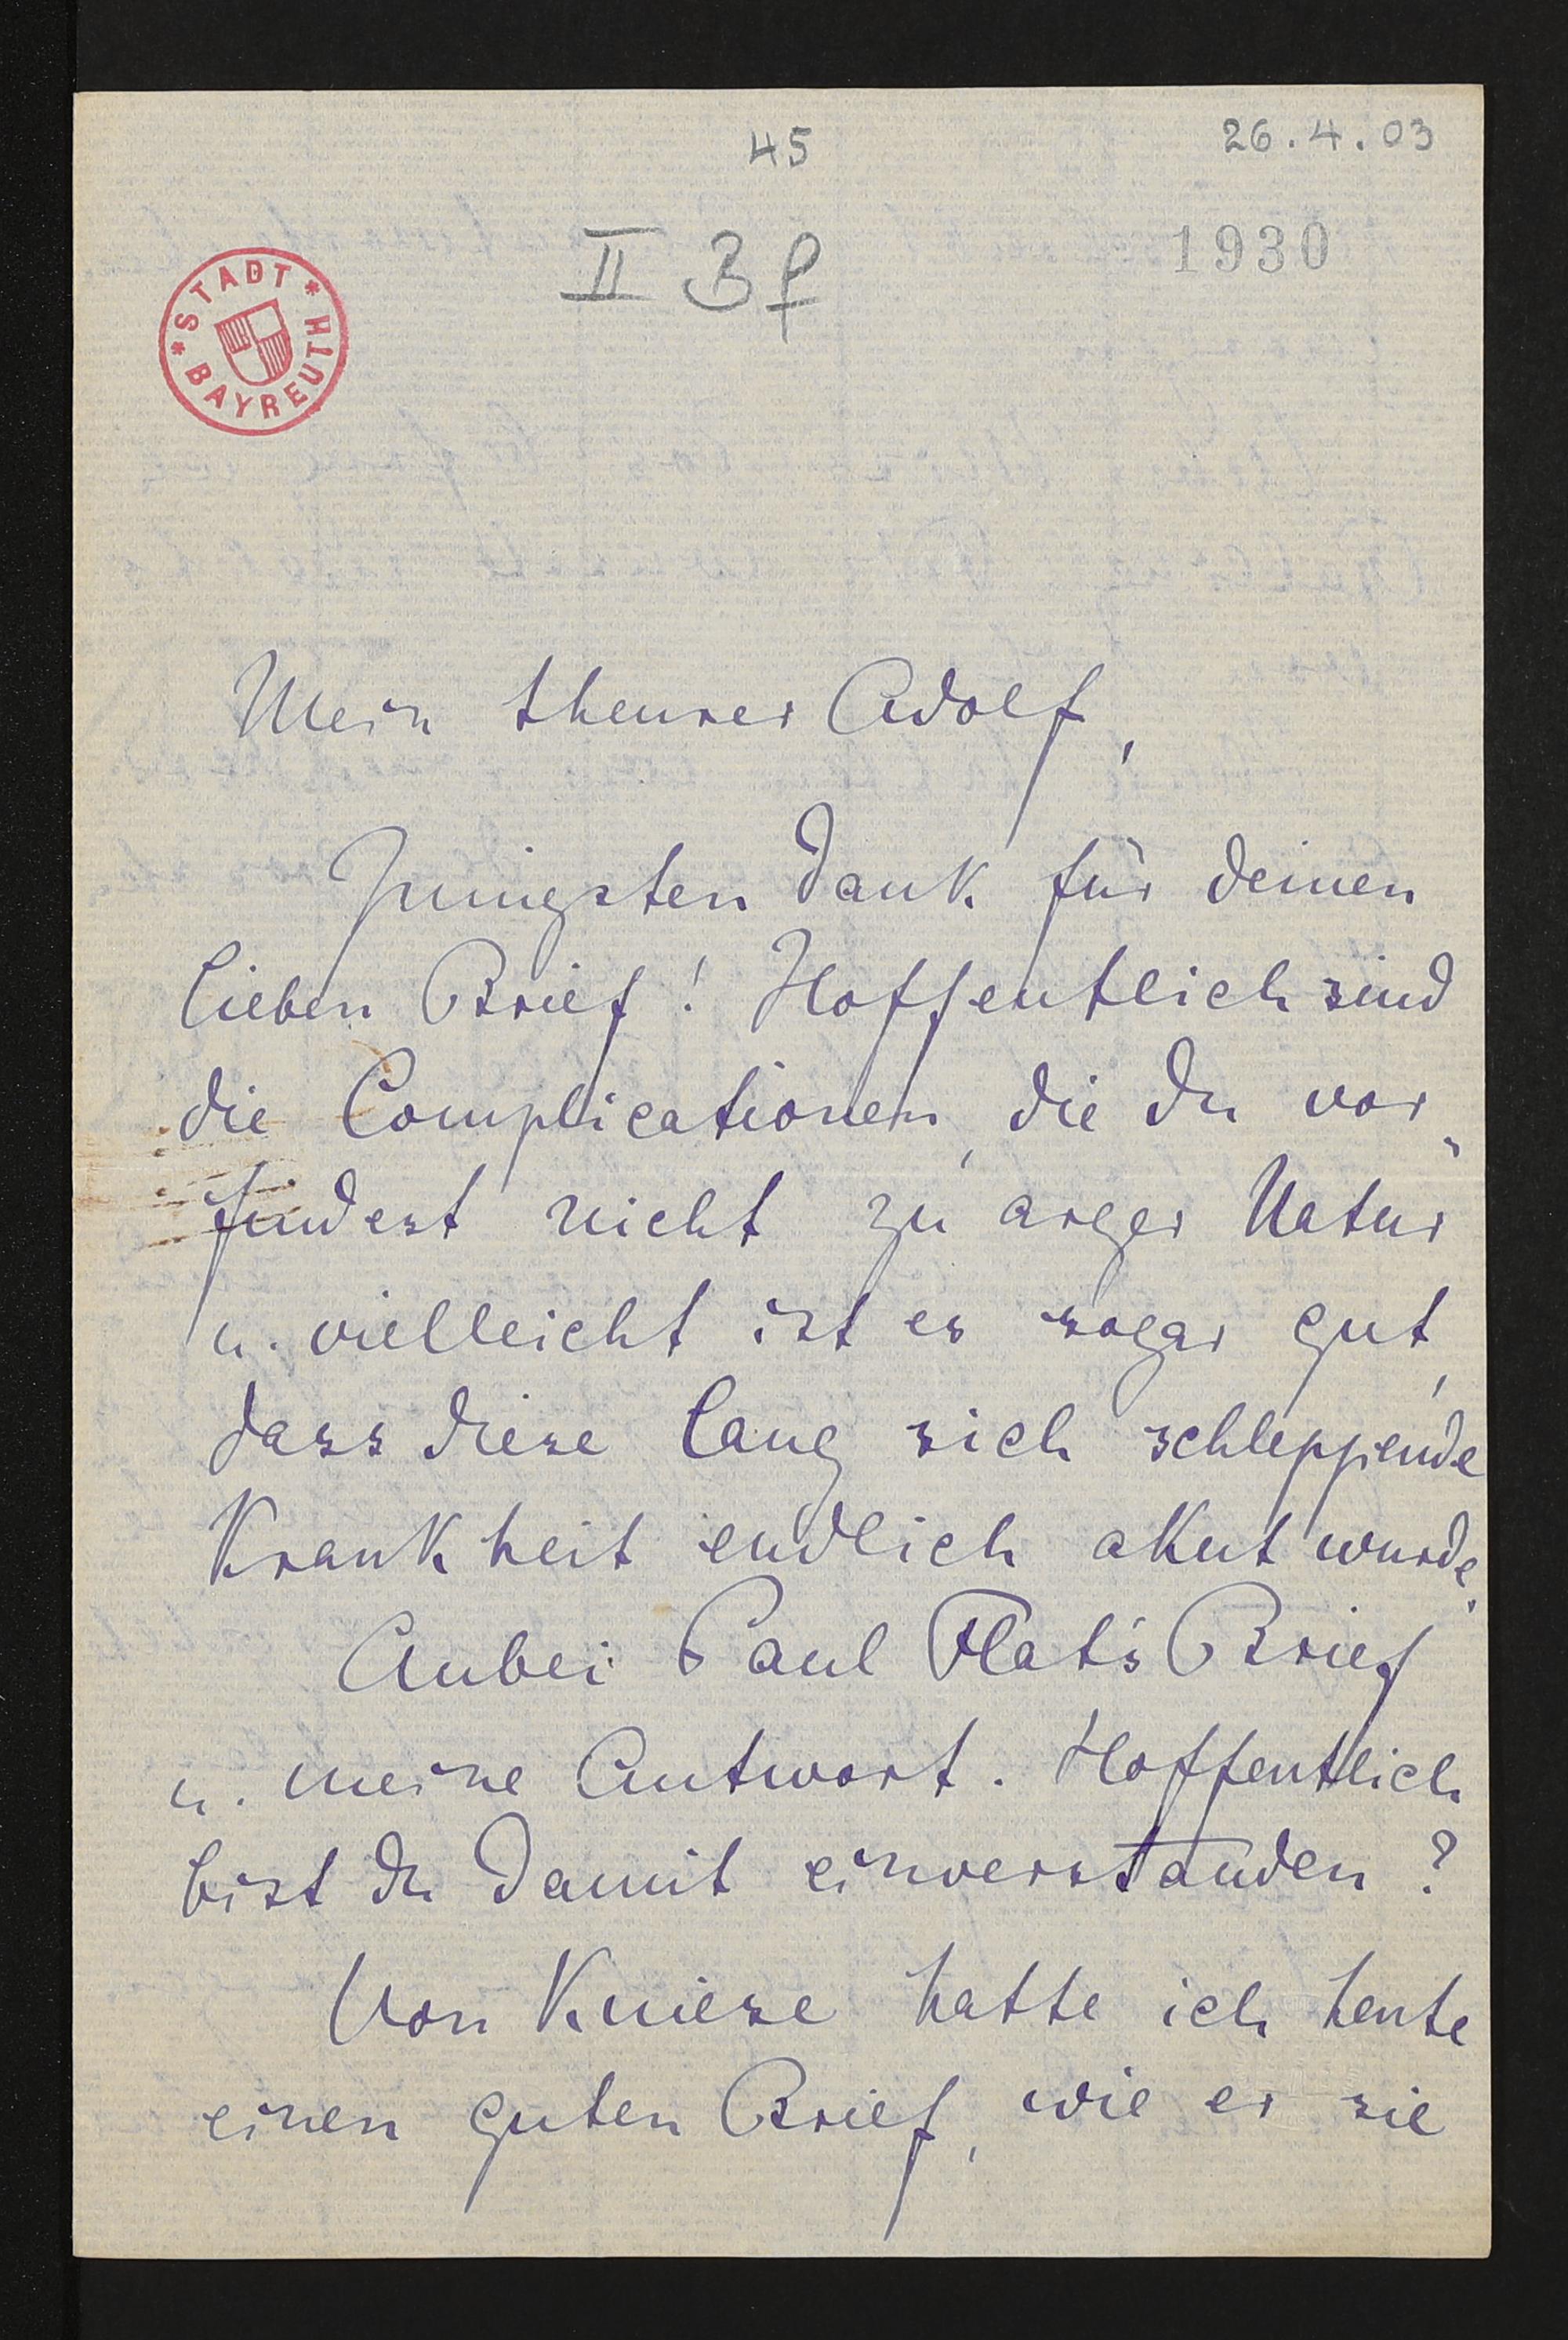 45
26.4.03
II 3 f
1930
* STADT * BAYREUTH
Mein theurer Adolf,
Innigsten Dank für deinen
lieben Brief! Hoffentlich sind
die Complicationen, die du vor„
findest nicht zu arger Natur
u. vielleicht ist es sogar gut,
dass diese lang sich schleppende
Krankheit endlich akut wurde.
Anbei Paul Flat's Brief
u. meine Antwort. Hoffentlich
bist du damit einverstanden?
Von Kniese hatte ich heute
einen guten Brief, wie er sie